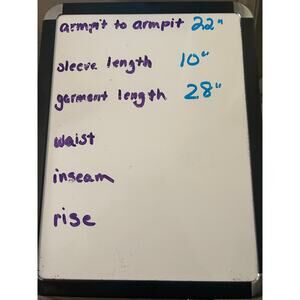 armpit to armpit 22"
sleeve length 10"
garment length 28"
waist
inseam
rise